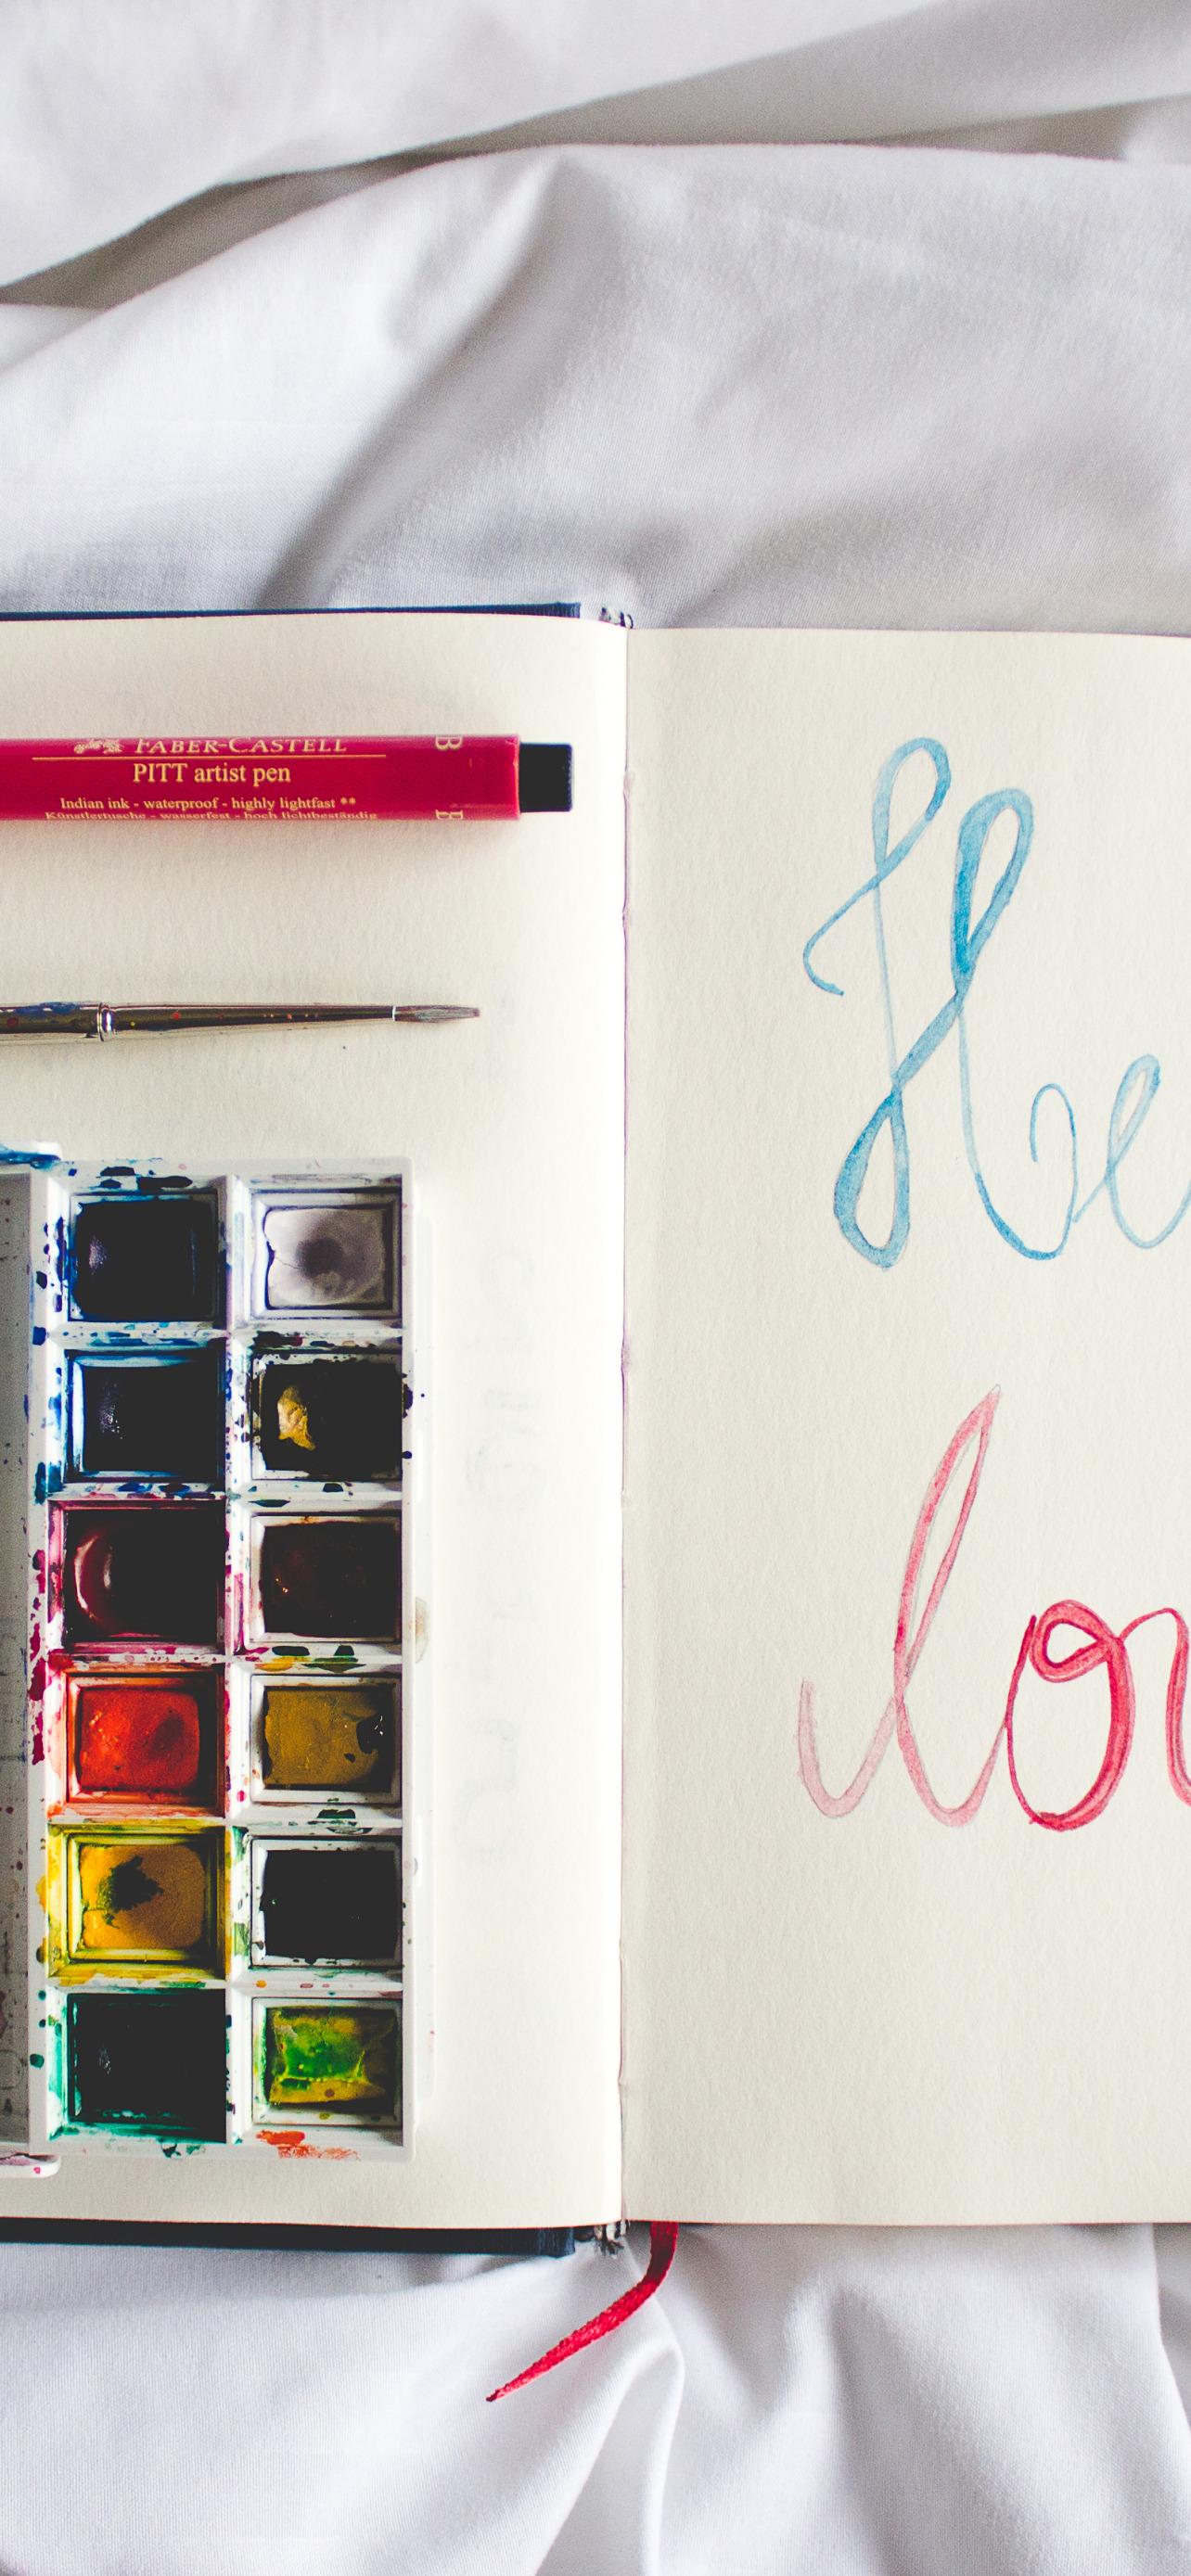 FABER-CASTELL B
PITT artist pen
Indian ink - waterproof - highly lightfast **
Künstlertusche - wasserfest - hoch lichtbeständig B
He
lo